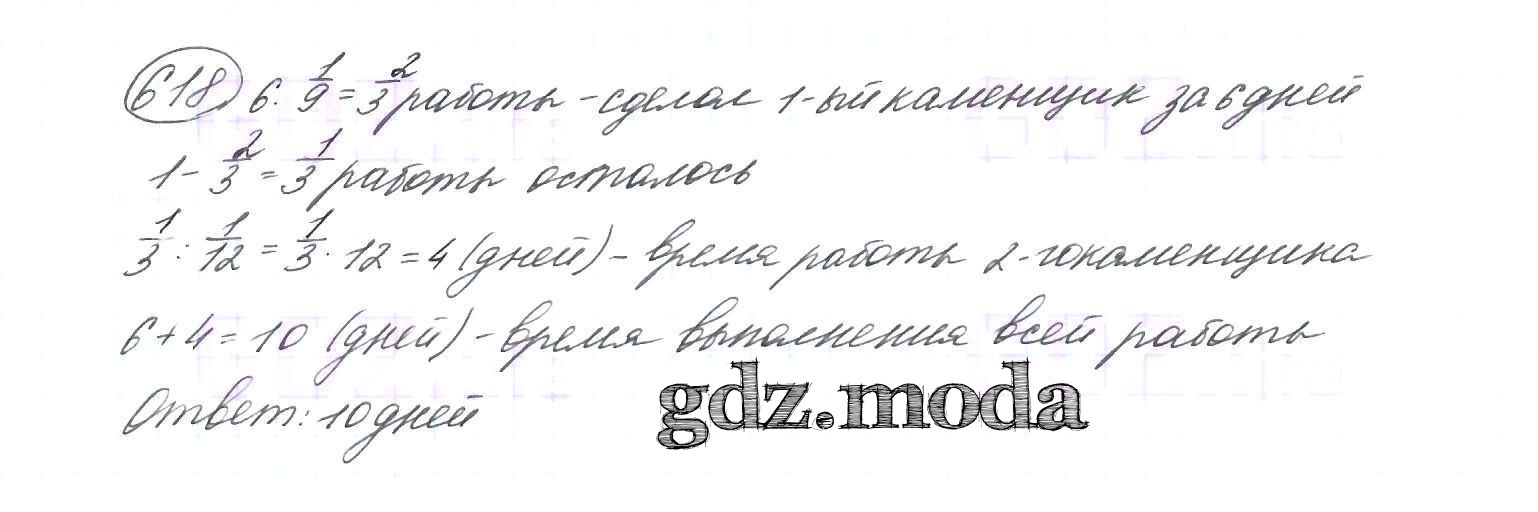 618. 6 · 1/9 = 2/3 работы - сделал 1-ый каменщик за 6 дней
1 - 2/3 = 1/3 работы осталось
1/3 : 1/12 = 1/3 · 12 = 4 (дней) - время работы 2-го каменщика
6 + 4 = 10 (дней) - время выполнения всей работы
Ответ: 10 дней
gdz.moda